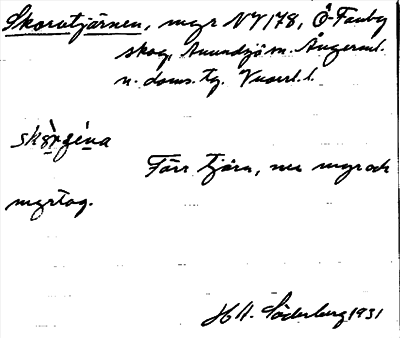 Skorutjärnen, myr NV 178, Ö-Fanby
skog, Anundsjö sn. Ångerml.
n. doms. tg. Vuorrl. l.
skò̠rʒé̠na
Förr tjärn, nu myr och
myrtag.
H A. Söderberg 1931